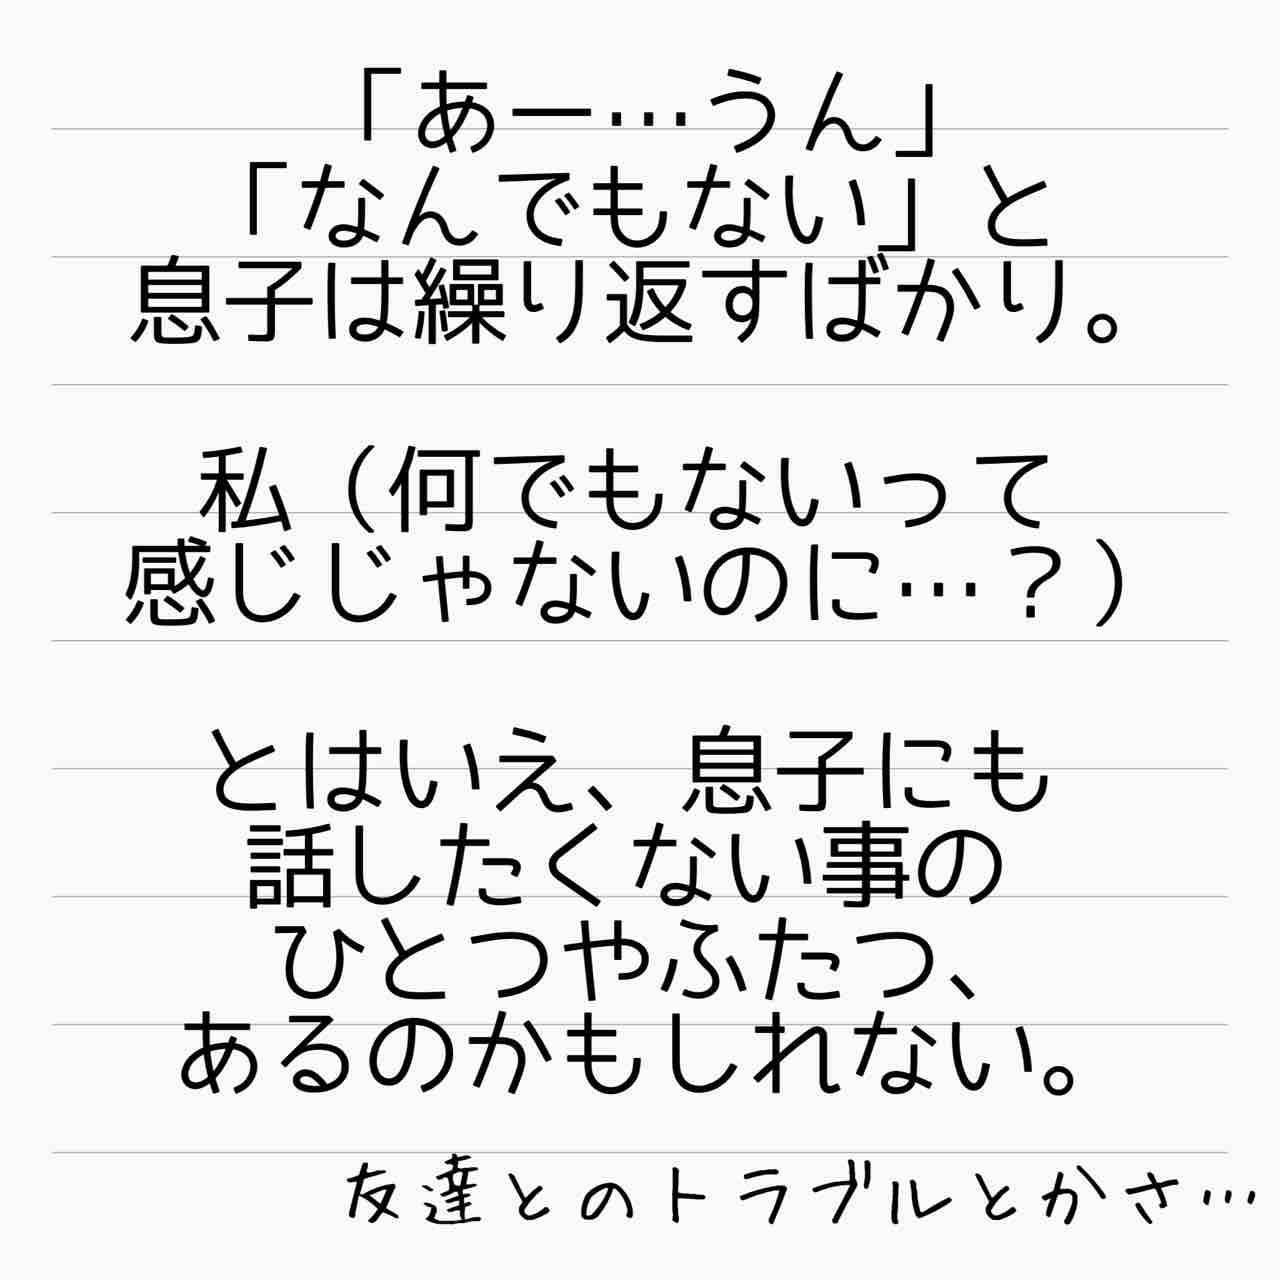 「あー…うん」
「なんでもない」と
息子は繰り返すばかり。
私（何でもないって
感じじゃないのに…？）
とはいえ、息子にも
話したくない事の
ひとつやふたつ、
あるのかもしれない。
友達とのトラブルとかさ…